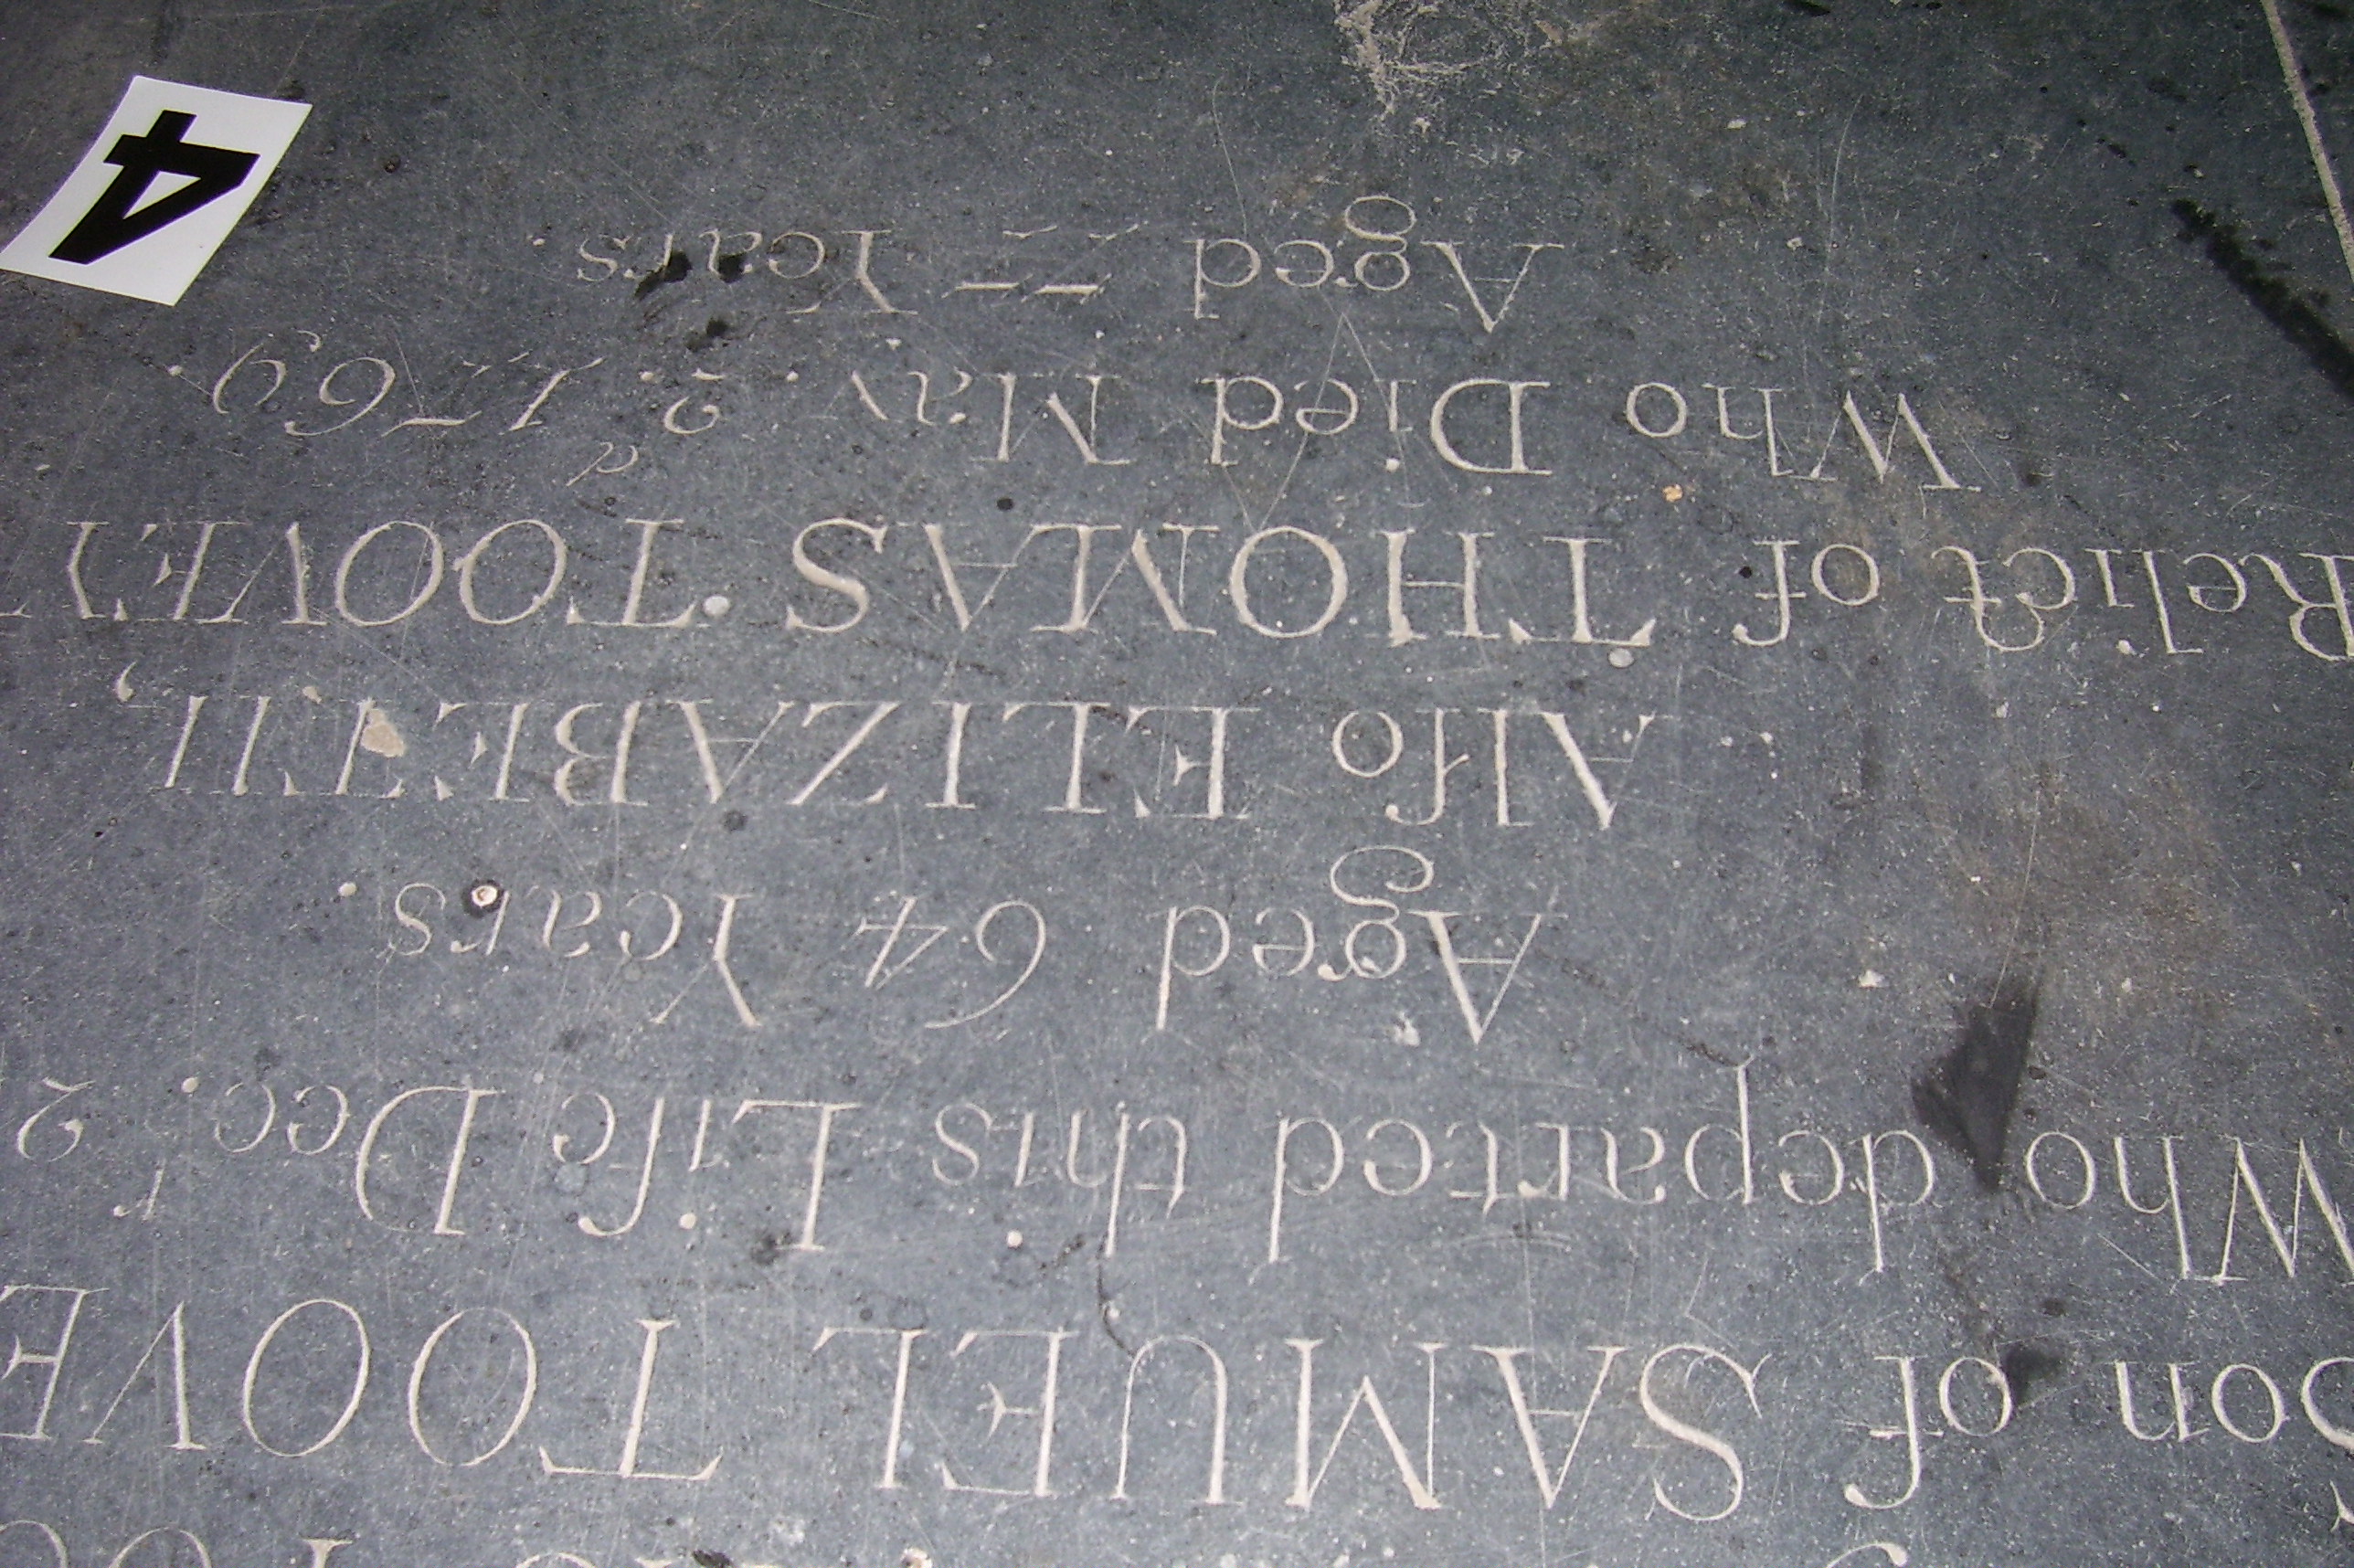 Son of SAMUEL TOOVE
Who departed this Life Dec.r 2
Aged 64 Years.
Alſo ELIZABETH,
Relict of THOMAS TOOVEY
Who Died May. 2.d 1769.
Aged 77 Years.
4